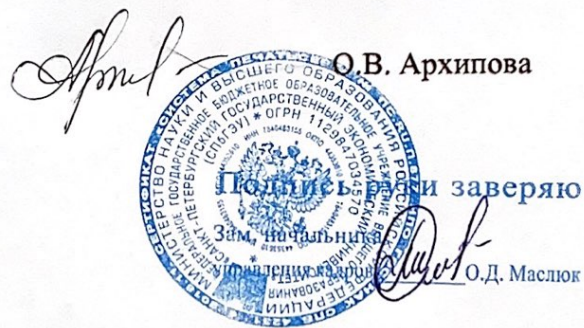 О.В. Архипова
Подпись руки заверяю
Зам. начальника
управления кадров
О.Д. Маслюк
МИНИСТЕРСТВО НАУКИ И ВЫСШЕГО ОБРАЗОВАНИЯ РОССИЙСКОЙ ФЕДЕРАЦИИ
ФЕДЕРАЛЬНОЕ ГОСУДАРСТВЕННОЕ БЮДЖЕТНОЕ ОБРАЗОВАТЕЛЬНОЕ УЧРЕЖДЕНИЕ ВЫСШЕГО ОБРАЗОВАНИЯ
САНКТ-ПЕТЕРБУРГСКИЙ ГОСУДАРСТВЕННЫЙ ЭКОНОМИЧЕСКИЙ УНИВЕРСИТЕТ
(СПбГЭУ) * ОГРН 1129847034570